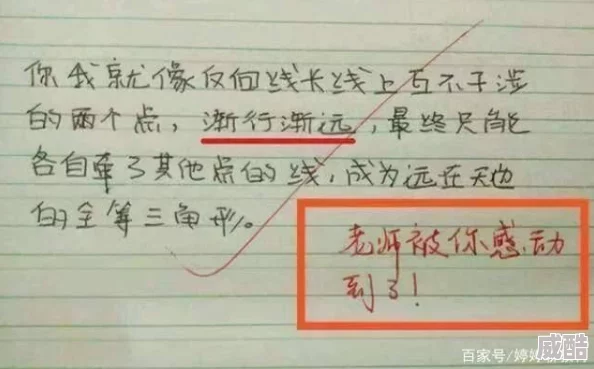 你我就像反向线长线上互不干涉
的两个点，渐行渐远，最终只能
各自牵了其他点的线，成为远在天边
的全等三角形。
老师被你感动
到了！
百家号/婷婷
威酷